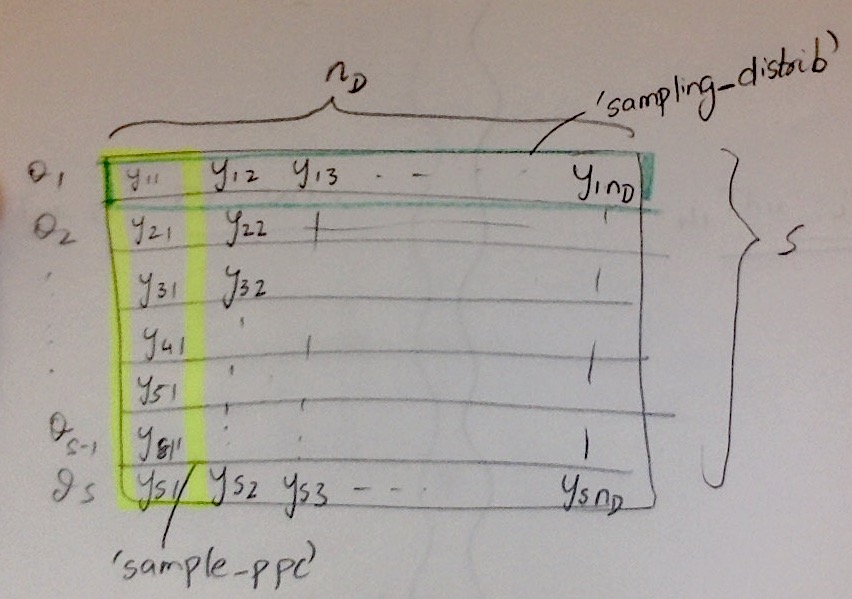 n_D
'sampling_distrib'
θ_1 y_11 y_12 y_13 . - . . y_1n_D
θ_2 y_21 y_22
y_31 y_32
S
y_41
y_51
θ_S-1
θ_S y_S1 y_S2 y_S3 - - - y_Sn_D
'sample_ppc'